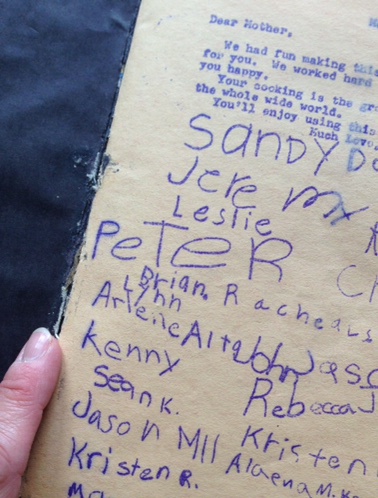 Dear Mother,
We had fun making this
for you. We worked hard
you happy.
Your cocking is the gr
the whole wide world.
You'll enjoy using this
Much Love,
SANDY D
Jere my
Leslie
PETER
Brian. Racheals
Lynn
Arlene Alta John Jaso
Kenny
Sean K. Rebecca J
Jason Mll Kristen
Kristen R. Alaena M. K